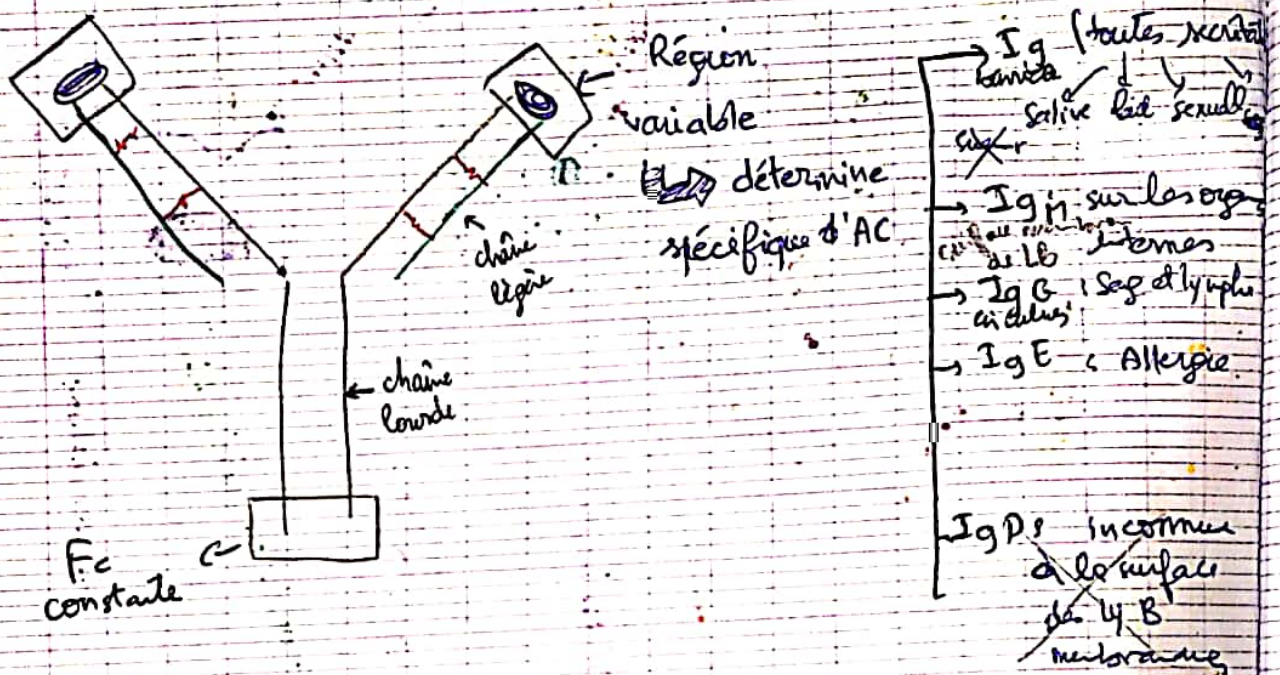 Région
variable
détermine
spécifique d'AC
chaîne
légère
chaîne
lourde
Fc
constante
Ig (toutes secrét
salive lait sexuelles
Ig sur les orgs
internes
de LB
IgG : Sag et lymphe
IgE : Allergie.
IgD : inconnue
à la surface
des Ly B
membranes